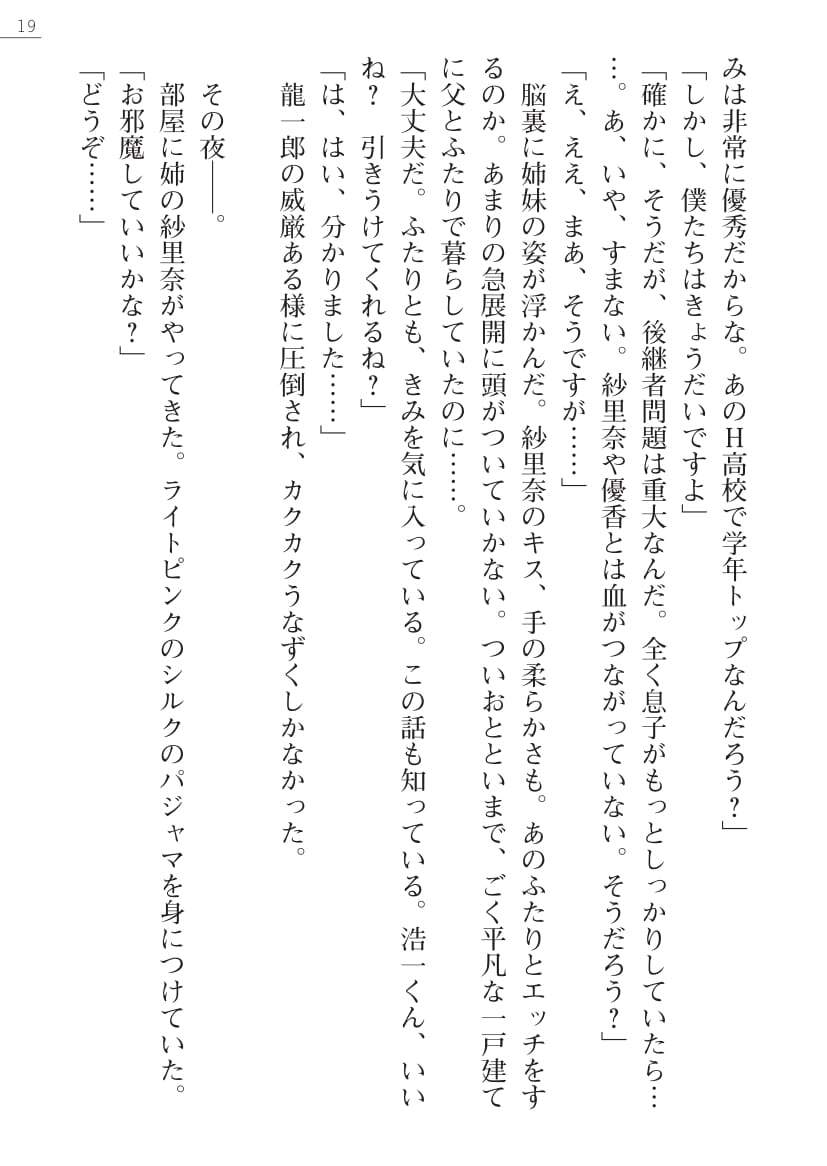 19
みは非常に優秀だからな。あのH高校で学年トップなんだろう？」
「しかし、僕たちはきょうだいですよ」
「確かに、そうだが、後継者問題は重大なんだ。全く息子がもっとしっかりしていたら…
…。あ、いや、すまない。紗里奈や優香とは血がつながっていない。そうだろう？」
「え、ええ、まあ、そうですが……」
　脳裏に姉妹の姿が浮かんだ。紗里奈のキス、手の柔らかさも。あのふたりとエッチをす
るのか。あまりの急展開に頭がついていかない。ついおとといまで、ごく平凡な一戸建て
に父とふたりで暮らしていたのに……。
「大丈夫だ。ふたりとも、きみを気に入っている。この話も知っている。浩一くん、いい
ね？　引きうけてくれるね？」
「は、はい、分かりました……」
　龍一郎の威厳ある様に圧倒され、カクカクうなずくしかなかった。
　その夜――。
　部屋に姉の紗里奈がやってきた。ライトピンクのシルクのパジャマを身につけていた。
「お邪魔していいかな？」
「どうぞ……」